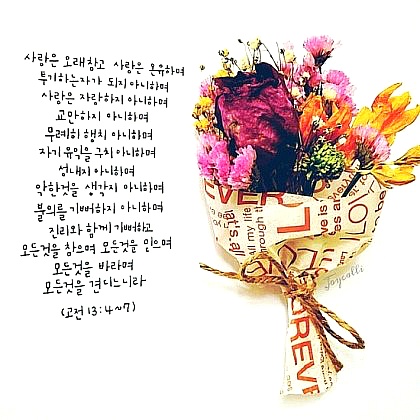 사랑은 오래참고 사랑은 온유하며
투기하는자가 되지 아니하며
사랑은 자랑하지 아니하며
교만하지 아니하며
무례히 행치 아니하며
자기 유익을 구치 아니하며
성내지 아니하며
악한것을 생각지 아니하며
불의를 기뻐하지 아니하며
진리와 함께 기뻐하고
모든것을 참으며 모든것을 믿으며
모든것을 바라며
모든것을 견디느니라
(고전 13:4~7)
EVER
LOVE
all my life
through th
Joycalli
OREVE